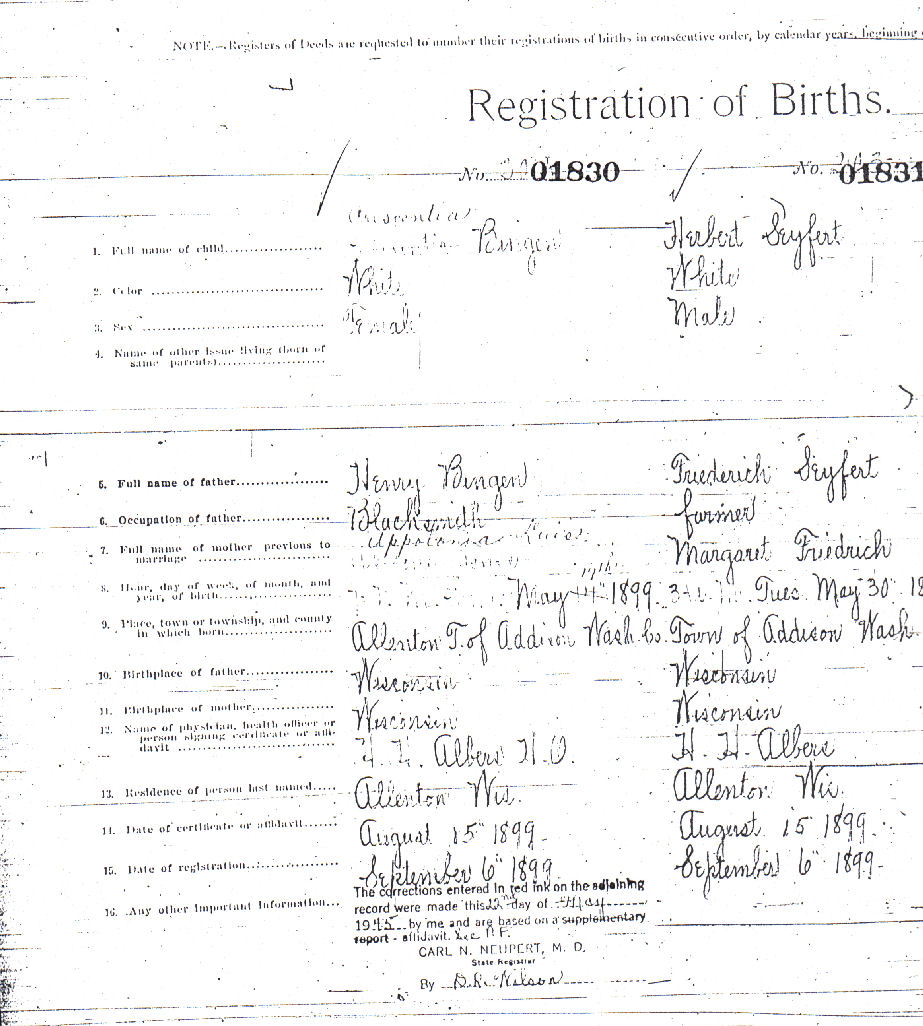 NOTE.—Registers of Deeds are requested to number their registrations of births in consecutive order, by calendar years, beginning
Registration of Births.
No. 01830 No. 01831
Crescentia
1. Full name of child Bingen Herbert Seyfert
2. Color White White
3. Sex Female Male
4. Name of other issue living (born of
same parents)
5. Full name of father Henry Bingen Friederich Seyfert
6. Occupation of father Blacksmith farmer
7. Full name of mother previous to
marriage Appolonia Margaret Friedrich
8. Hour, day of week, of month, and
year, of birth May 1899 Tues. May 30 18
9. Place, town or township, and county
in which born Allenton T. of Addison Wash. Co. Town of Addison Wash.
10. Birthplace of father Wisconsin Wisconsin
11. Birthplace of mother Wisconsin Wisconsin
12. Name of physician, health officer or
person signing certificate or affi-
davit H. H. Albers H.O. H. H. Albers
13. Residence of person last named Allenton Wis. Allenton Wis.
14. Date of certificate or affidavit August 15" 1899. August 15 1899.
15. Date of registration September 6" 1899. September 6" 1899.
16. Any other important information
The corrections entered in red ink on the adjoining
record were made this 22nd day of May
1945 by me and are based on a supplementary
report - affidavit.
CARL N. NEUPERT, M. D.
State Registrar
By Wilson